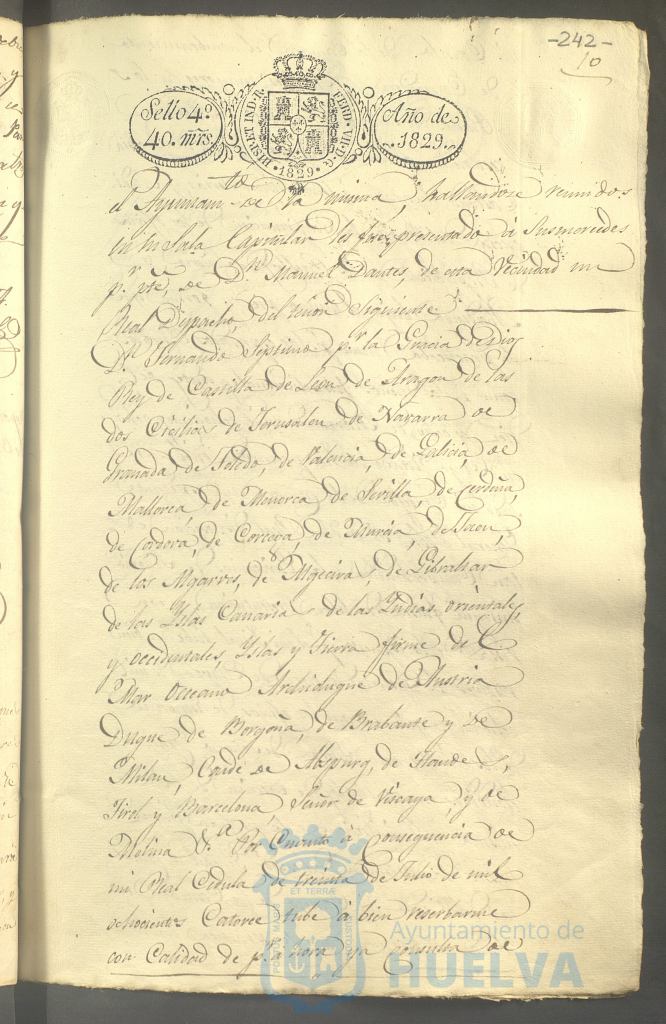 -242-
10
Sello 4º
40. mrs
HISP. ET IND. R.
FERD. VII. D. G.
1829
Año de
1829.
el Ayuntamto de la misma, hallandose reunidos
en su Sala Capitular les fue presentado à Susmercedes
pr pte, de Dn Manuel Dantes, de esta Vecindad un
Real Despacho, del tenor Siguiente
Dn Fernando Septimo pr la Gracia de Dios
Rey de Castilla de Leon de Aragon de las
dos Cicilias de Jerusalen de Navarra de
Granada de Toledo, de Valencia, de Galicia, de
Mallorca, de Menorca de Sevilla, de Cerdeña,
de Cordova, de Corcega, de Murcia, de Jaen,
de los Algarves, de Algecira, de Gibraltar
de las Yslas Canarias de las Yndias orientales,
y occidentales, Yslas y Tierra firme del
Mar Occeano Archiduque de Austria
Duque de Borgoña, de Brabante y de
Milan, Conde de Abspurg, de Flandes,
Tirol y Barcelona, Señor de Viscaya, y de
Molina &.a Por Cuanto à Consequencia de
mi Real Cedula de treinta de Julio de mil
ochocientos Catorce tube à bien reserbarme
con Calidad de pr ahora ya Consulta de
Ayuntamiento de
HUELVA